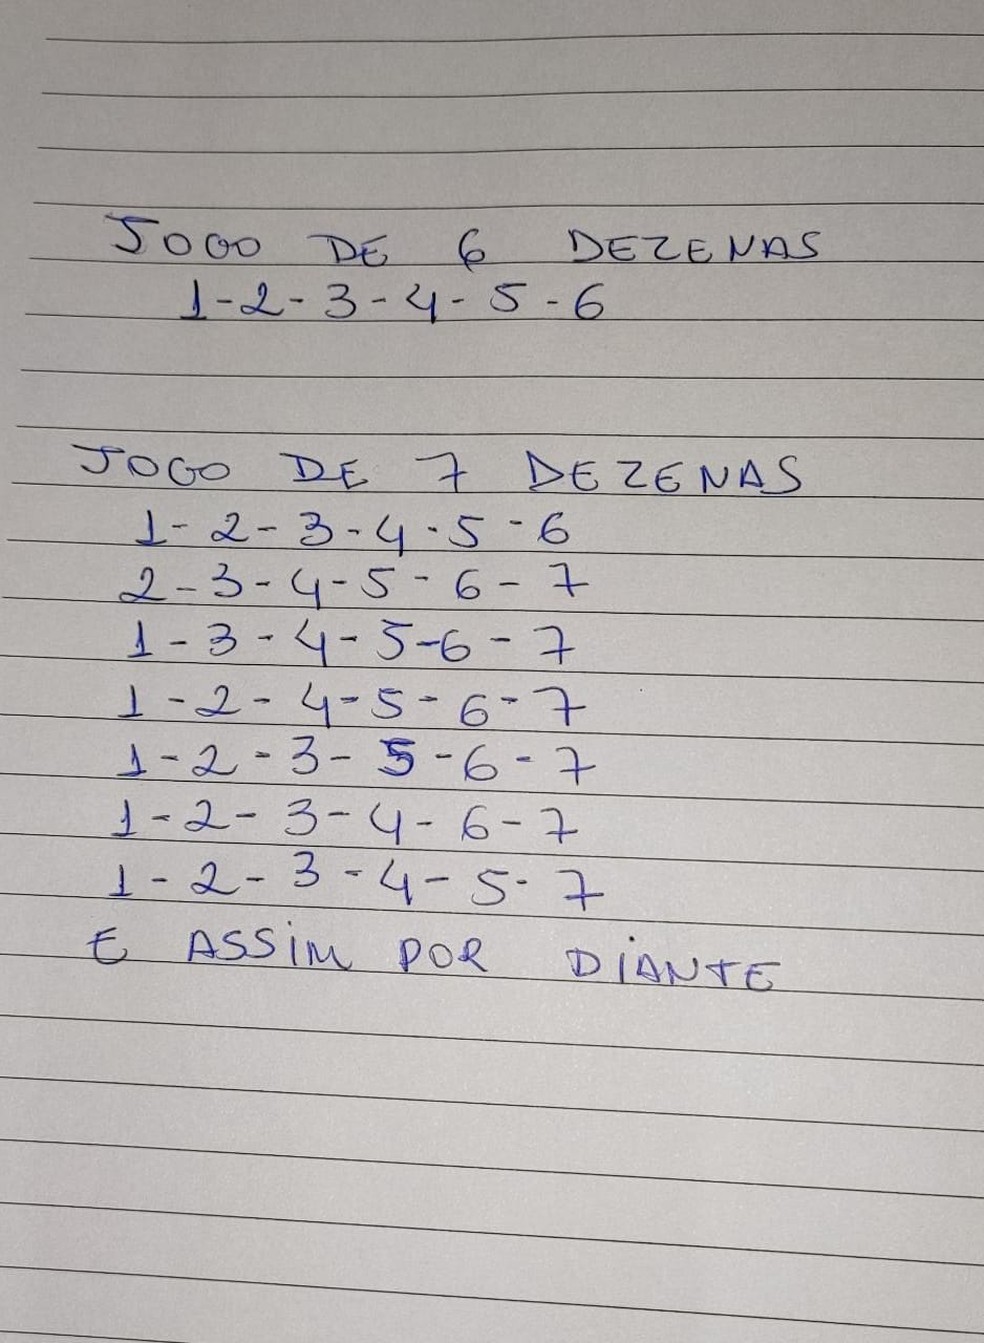 JOGO DE 6 DEZENAS
1-2-3-4-5-6
JOGO DE 7 DEZENAS
1-2-3-4-5-6
2-3-4-5-6-7
1-3-4-5-6-7
1-2-4-5-6-7
1-2-3-5-6-7
1-2-3-4-6-7
1-2-3-4-5-7
E ASSIM POR DIANTE